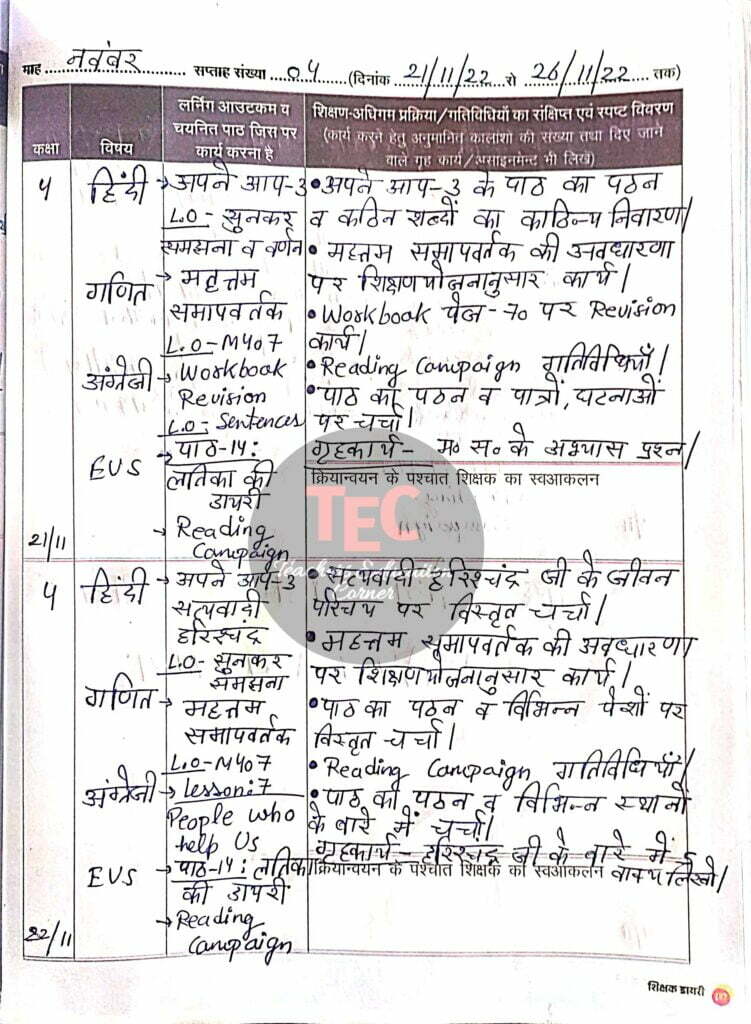 माह नवंबर सप्ताह संख्या 04 (दिनांक 21/11/22 से 26/11/22 तक)
कक्षा
विषय
लर्निग आउटकम व
चयनित पाठ जिस पर
कार्य करना है
शिक्षण-अधिगम प्रक्रिया/गतिविधियों का संक्षिप्त एवं स्पष्ट विवरण
(कार्य करने हेतु अनुमानित कालांशो की संख्या तथा दिए जाने
वाले गृह कार्य/असाइनमेंट भी लिखें)
4 हिंदी → अपने आप-3 • अपने आप-3 के पाठ का पठन
L.O - सुनकर व कठिन शब्दों का काठिन्य निवारण।
समझना व वर्णन • महत्तम समापवर्तक की अवधारणा
गणित → महत्तम पर शिक्षणयोजनानुसार कार्य।
समापवर्तक • Workbook पेज-70 पर Revision
L.O - M407 कार्य।
अंग्रेजी → Workbook • Reading Campaign गतिविधियाँ।
Revision • पाठ का पठन व पात्रों, घटनाओं
L.O - Sentences पर चर्चा।
EVS → पाठ-14: गृहकार्य- म० स० के अभ्यास प्रश्न।
लतिका की क्रियान्वयन के पश्चात शिक्षक का स्वआकलन
डायरी
→ Reading
21/11 Campaign
TEC
Teachers Education
Corner
4 हिंदी → अपने आप-3 • सत्यवादी हरिश्चंद्र जी के जीवन
सत्यवादी परिचय पर विस्तृत चर्चा।
हरिश्चंद्र • महत्तम समापवर्तक की अवधारणा
L.O - सुनकर पर शिक्षणयोजनानुसार कार्य।
समझना
गणित → महत्तम • पाठ का पठन व विभिन्न पेशों पर
समापवर्तक विस्तृत चर्चा।
L.O - M407 • Reading Campaign गतिविधियाँ।
अंग्रेजी → Lesson: 7 • पाठ का पठन व विभिन्न स्थानों
People who के बारे में चर्चा।
help Us गृहकार्य- हरिश्चंद्र जी के बारे में
EVS → पाठ-14: लतिका क्रियान्वयन के पश्चात शिक्षक का स्वआकलन वाक्य लिखो।
की डायरी
→ Reading
22/11 Campaign
शिक्षक डायरी